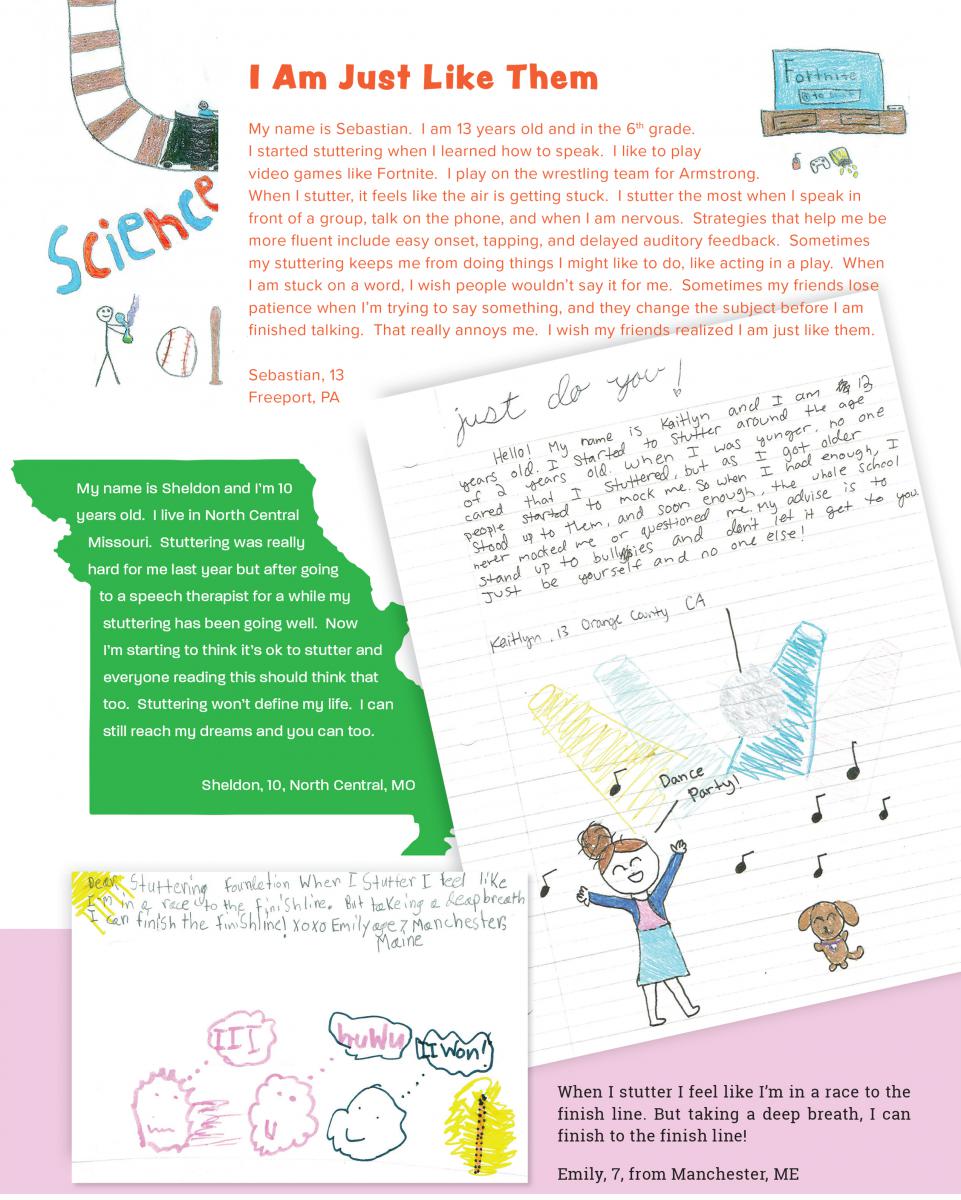 I Am Just Like Them
Fortnite
My name is Sebastian.  I am 13 years old and in the 6th grade.
I started stuttering when I learned how to speak.  I like to play
video games like Fortnite.  I play on the wrestling team for Armstrong.
When I stutter, it feels like the air is getting stuck.  I stutter the most when I speak in
front of a group, talk on the phone, and when I am nervous.  Strategies that help me be
more fluent include easy onset, tapping, and delayed auditory feedback.  Sometimes
my stuttering keeps me from doing things I might like to do, like acting in a play.  When
I am stuck on a word, I wish people wouldn't say it for me.  Sometimes my friends lose
patience when I'm trying to say something, and they change the subject before I am
finished talking.  That really annoys me.  I wish my friends realized I am just like them.
Sebastian, 13
Freeport, PA
Science
just do you!
Hello! My name is Kaitlyn and I am 13
years old. I started to stutter around the age
of 2 years old. When I was yunger, no one
cared that I stuttered, but as I got older
people started to mock me. So when I had enough, I
stood up to them, and soon enough, the whole school
never mocked me or questioned me. My advise is to
stand up to bullies and don't let it get to you.
Just be yourself and no one else!
Kaitlyn, 13 Orange County CA
Dance
Party!
My name is Sheldon and I'm 10
years old.  I live in North Central
Missouri.  Stuttering was really
hard for me last year but after going
to a speech therapist for a while my
stuttering has been going well.  Now
I'm starting to think it's ok to stutter and
everyone reading this should think that
too.  Stuttering won't define my life.  I can
still reach my dreams and you can too.
Sheldon, 10, North Central, MO
Dear Stuttering Foundation When I Stutter I feel like
I'm in a race to the finishline. But takeing a deap breath
I can finish the finishline! xoxo Emily age 7 Manchesters
Maine
III
wuwu
II won!
When I stutter I feel like I'm in a race to the
finish line. But taking a deep breath, I can
finish to the finish line!
Emily, 7, from Manchester, ME